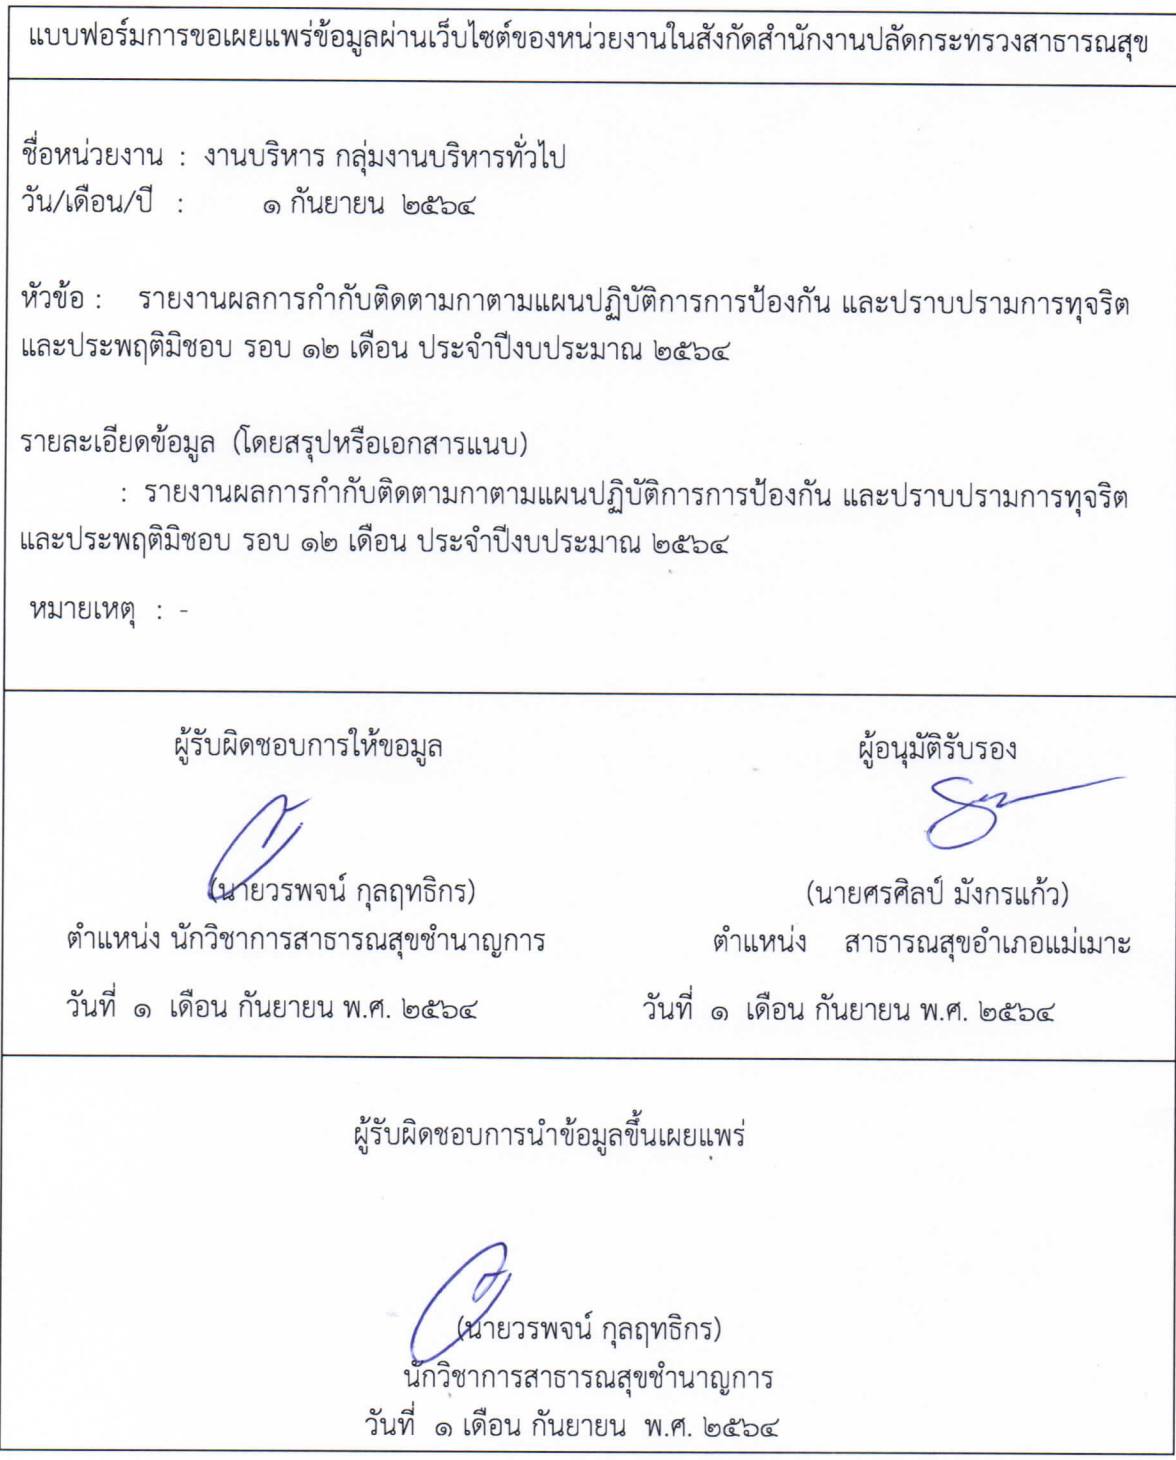 แบบฟอร์มการขอเผยแพร่ข้อมูลผ่านเว็บไซต์ของหน่วยงานในสังกัดสำนักงานปลัดกระทรวงสาธารณสุข
ชื่อหน่วยงาน : งานบริหาร กลุ่มงานบริหารทั่วไป
วัน/เดือน/ปี : ๑ กันยายน ๒๕๖๔
หัวข้อ : รายงานผลการกำกับติดตามกาตามแผนปฏิบัติการการป้องกัน และปราบปรามการทุจริต
และประพฤติมิชอบ รอบ ๑๒ เดือน ประจำปีงบประมาณ ๒๕๖๔
รายละเอียดข้อมูล (โดยสรุปหรือเอกสารแนบ)
: รายงานผลการกำกับติดตามกาตามแผนปฏิบัติการการป้องกัน และปราบปรามการทุจริต
และประพฤติมิชอบ รอบ ๑๒ เดือน ประจำปีงบประมาณ ๒๕๖๔
หมายเหตุ : -
ผู้รับผิดชอบการให้ขอมูล ผู้อนุมัติรับรอง
(นายวรพจน์ กุลฤทธิกร) (นายศรศิลป์ มังกรแก้ว)
ตำแหน่ง นักวิชาการสาธารณสุขชำนาญการ ตำแหน่ง สาธารณสุขอำเภอแม่เมาะ
วันที่ ๑ เดือน กันยายน พ.ศ. ๒๕๖๔ วันที่ ๑ เดือน กันยายน พ.ศ. ๒๕๖๔
ผู้รับผิดชอบการนำข้อมูลขึ้นเผยแพร่
(นายวรพจน์ กุลฤทธิกร)
นักวิชาการสาธารณสุขชำนาญการ
วันที่ ๑ เดือน กันยายน พ.ศ. ๒๕๖๔